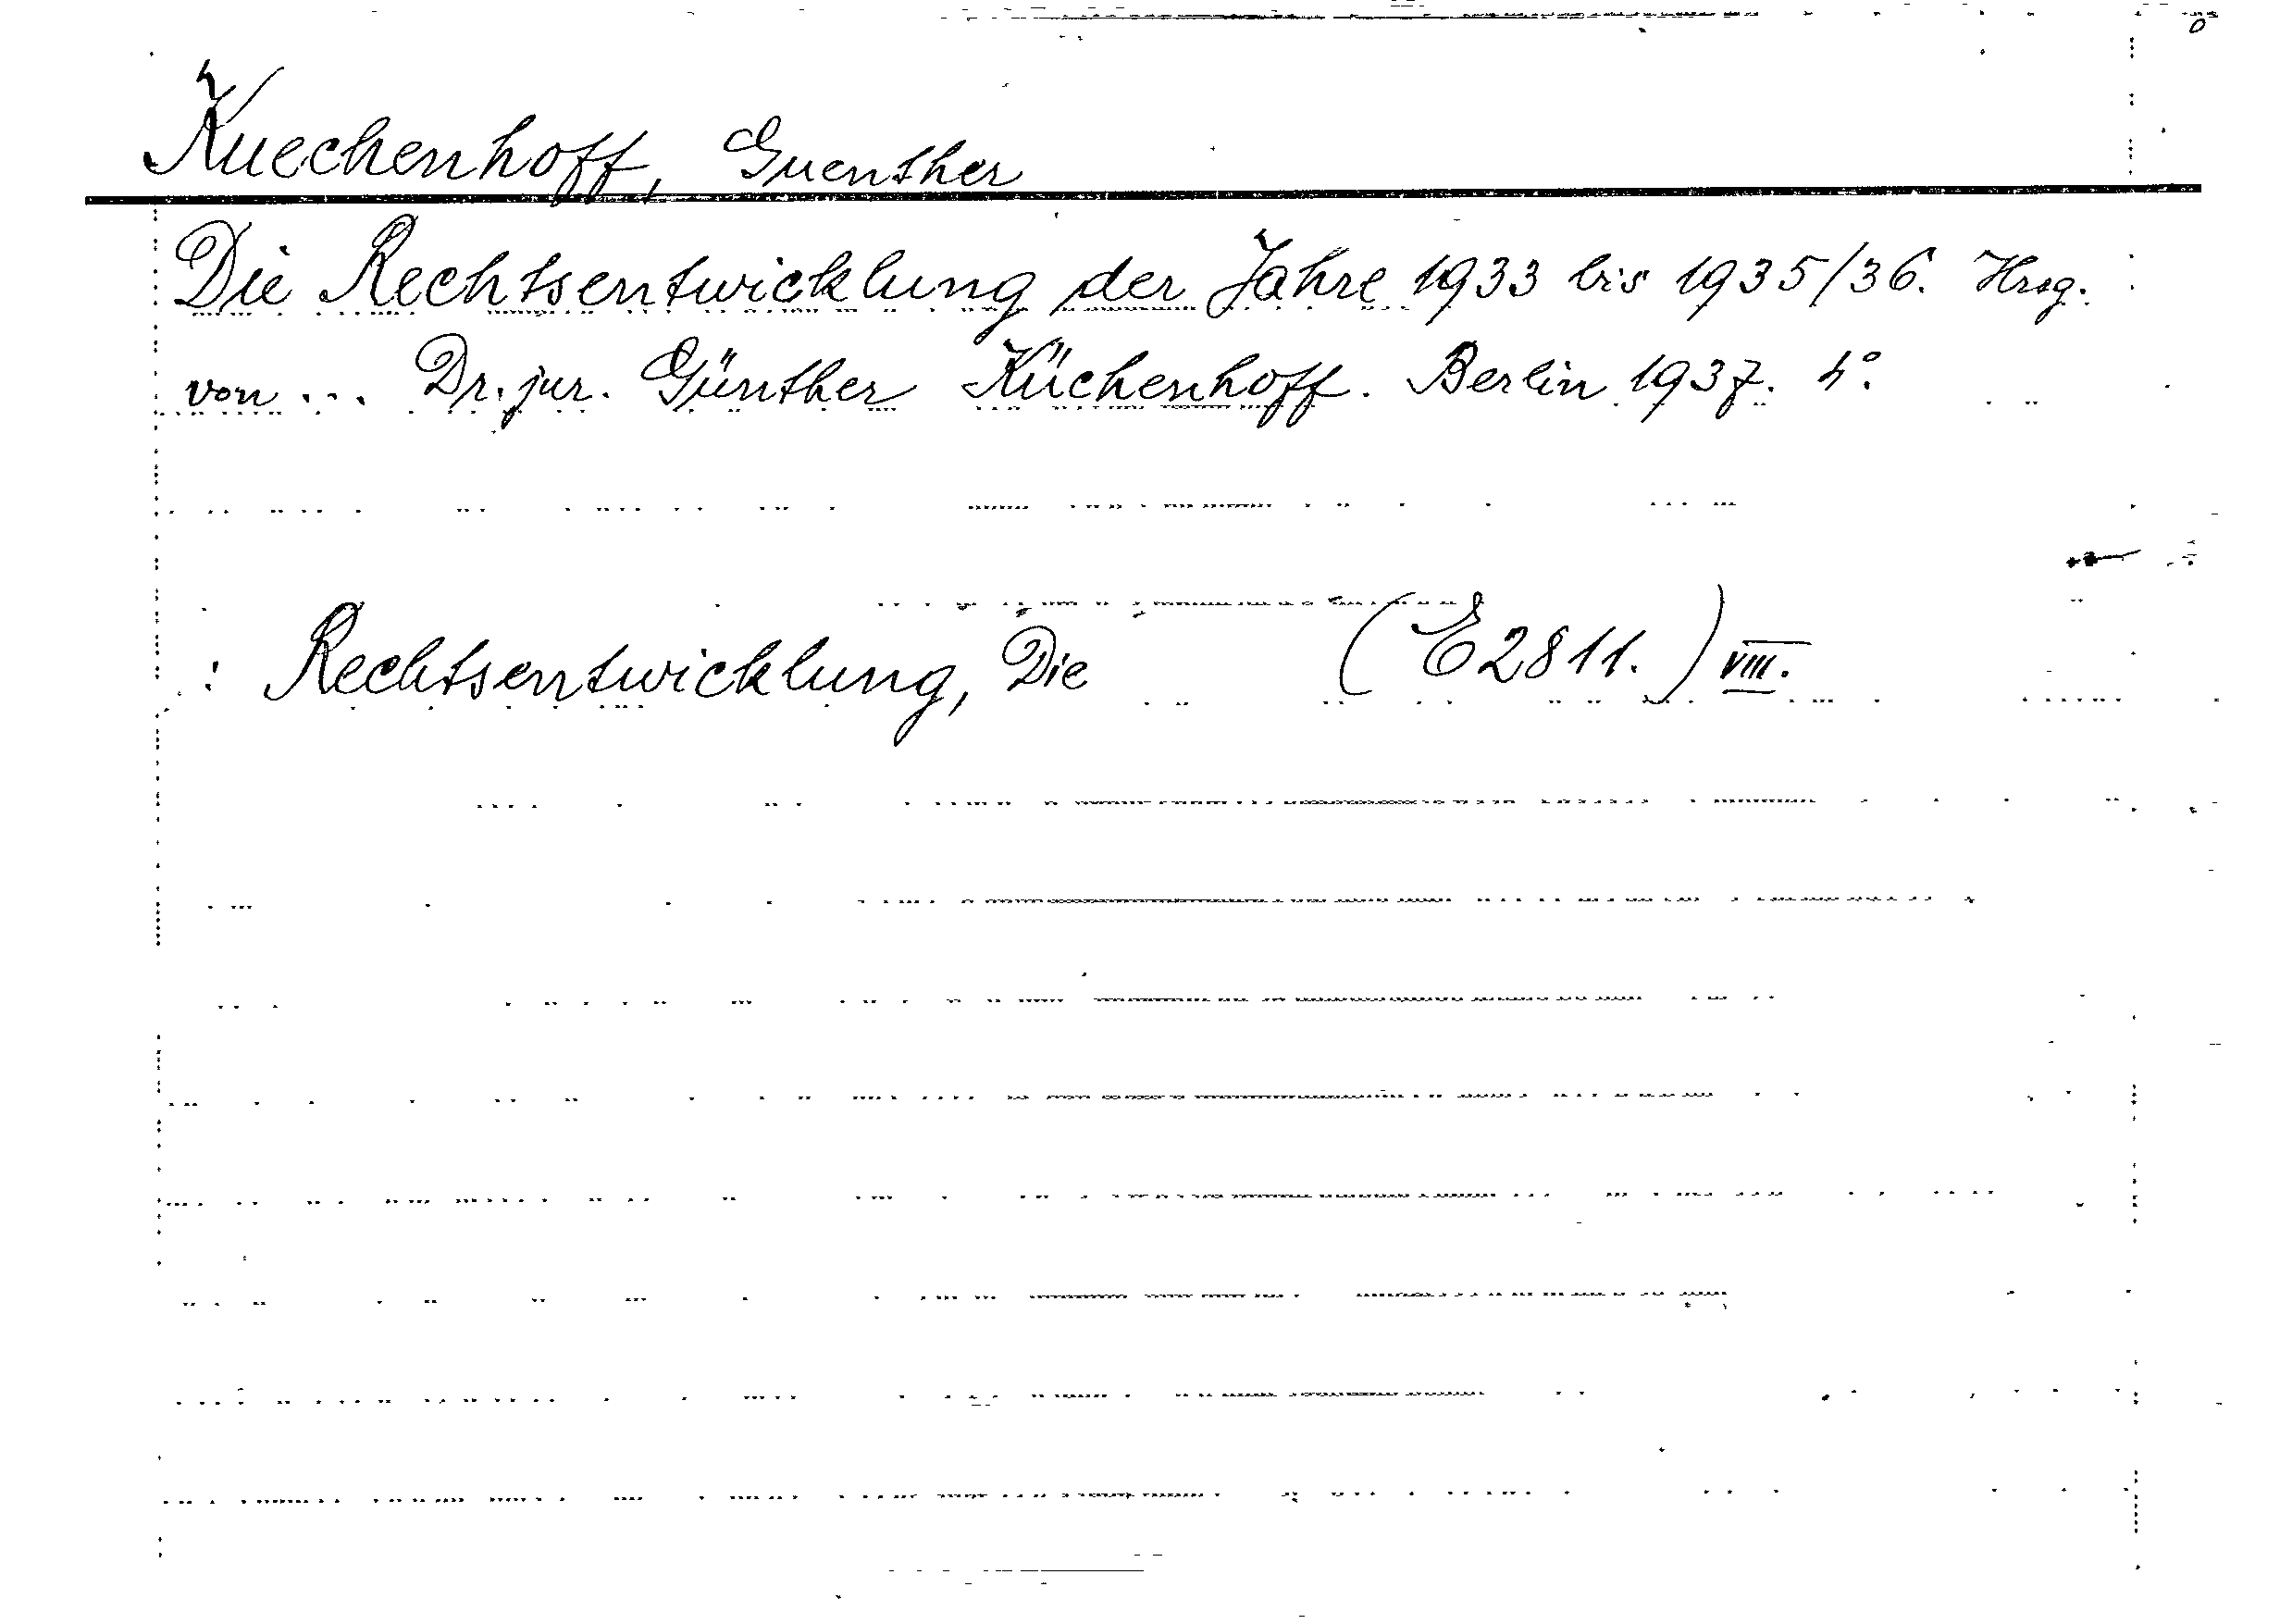 Kuechenhoff, Guenther
Die Rechtsentwicklung der Jahre 1933 bis 1935/36. Hrsg.
von ... Dr. jur. Günther Küchenhoff. Berlin 1937. 4°.
: Rechtsentwicklung, Die (E2811.) VIII.